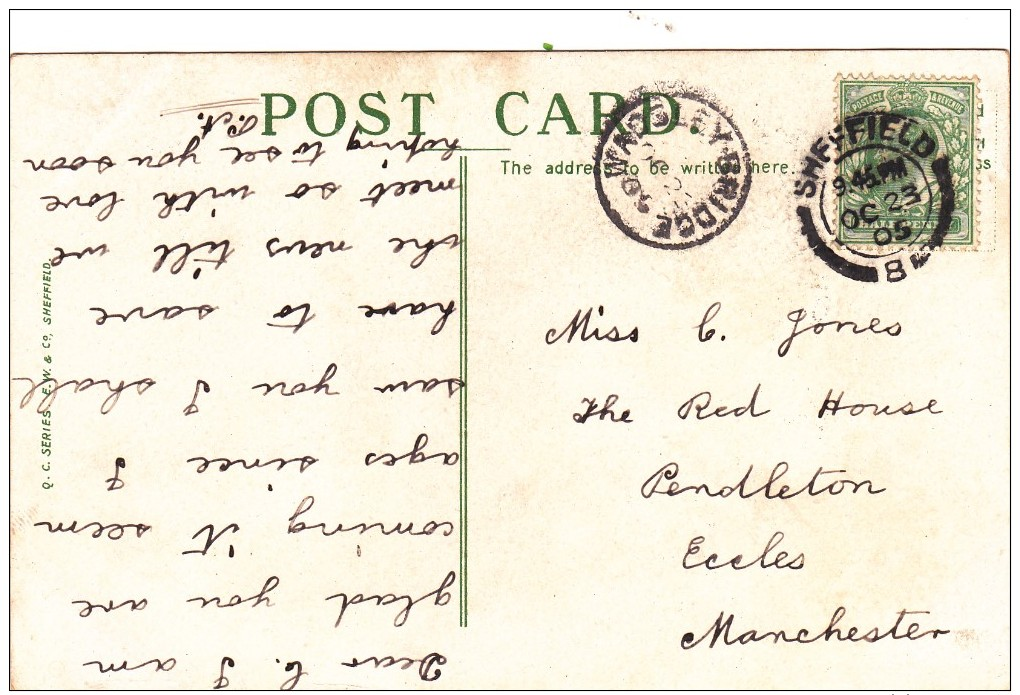 POST CARD.
The address to be written here.
POSTAGE & REVENUE
HALFPENNY
SHEFFIELD
9.45 PM
OC 23
05
8
Miss C. Jones
The Red House
Pendleton
Eccles
Manchester
Q. C. SERIES. E.W. & Co, SHEFFIELD.
Dear C. I am
glad you are
coming it seem
ages since I
saw you I shall
have to save
the news till we
meet so with love
hoping to see you soon